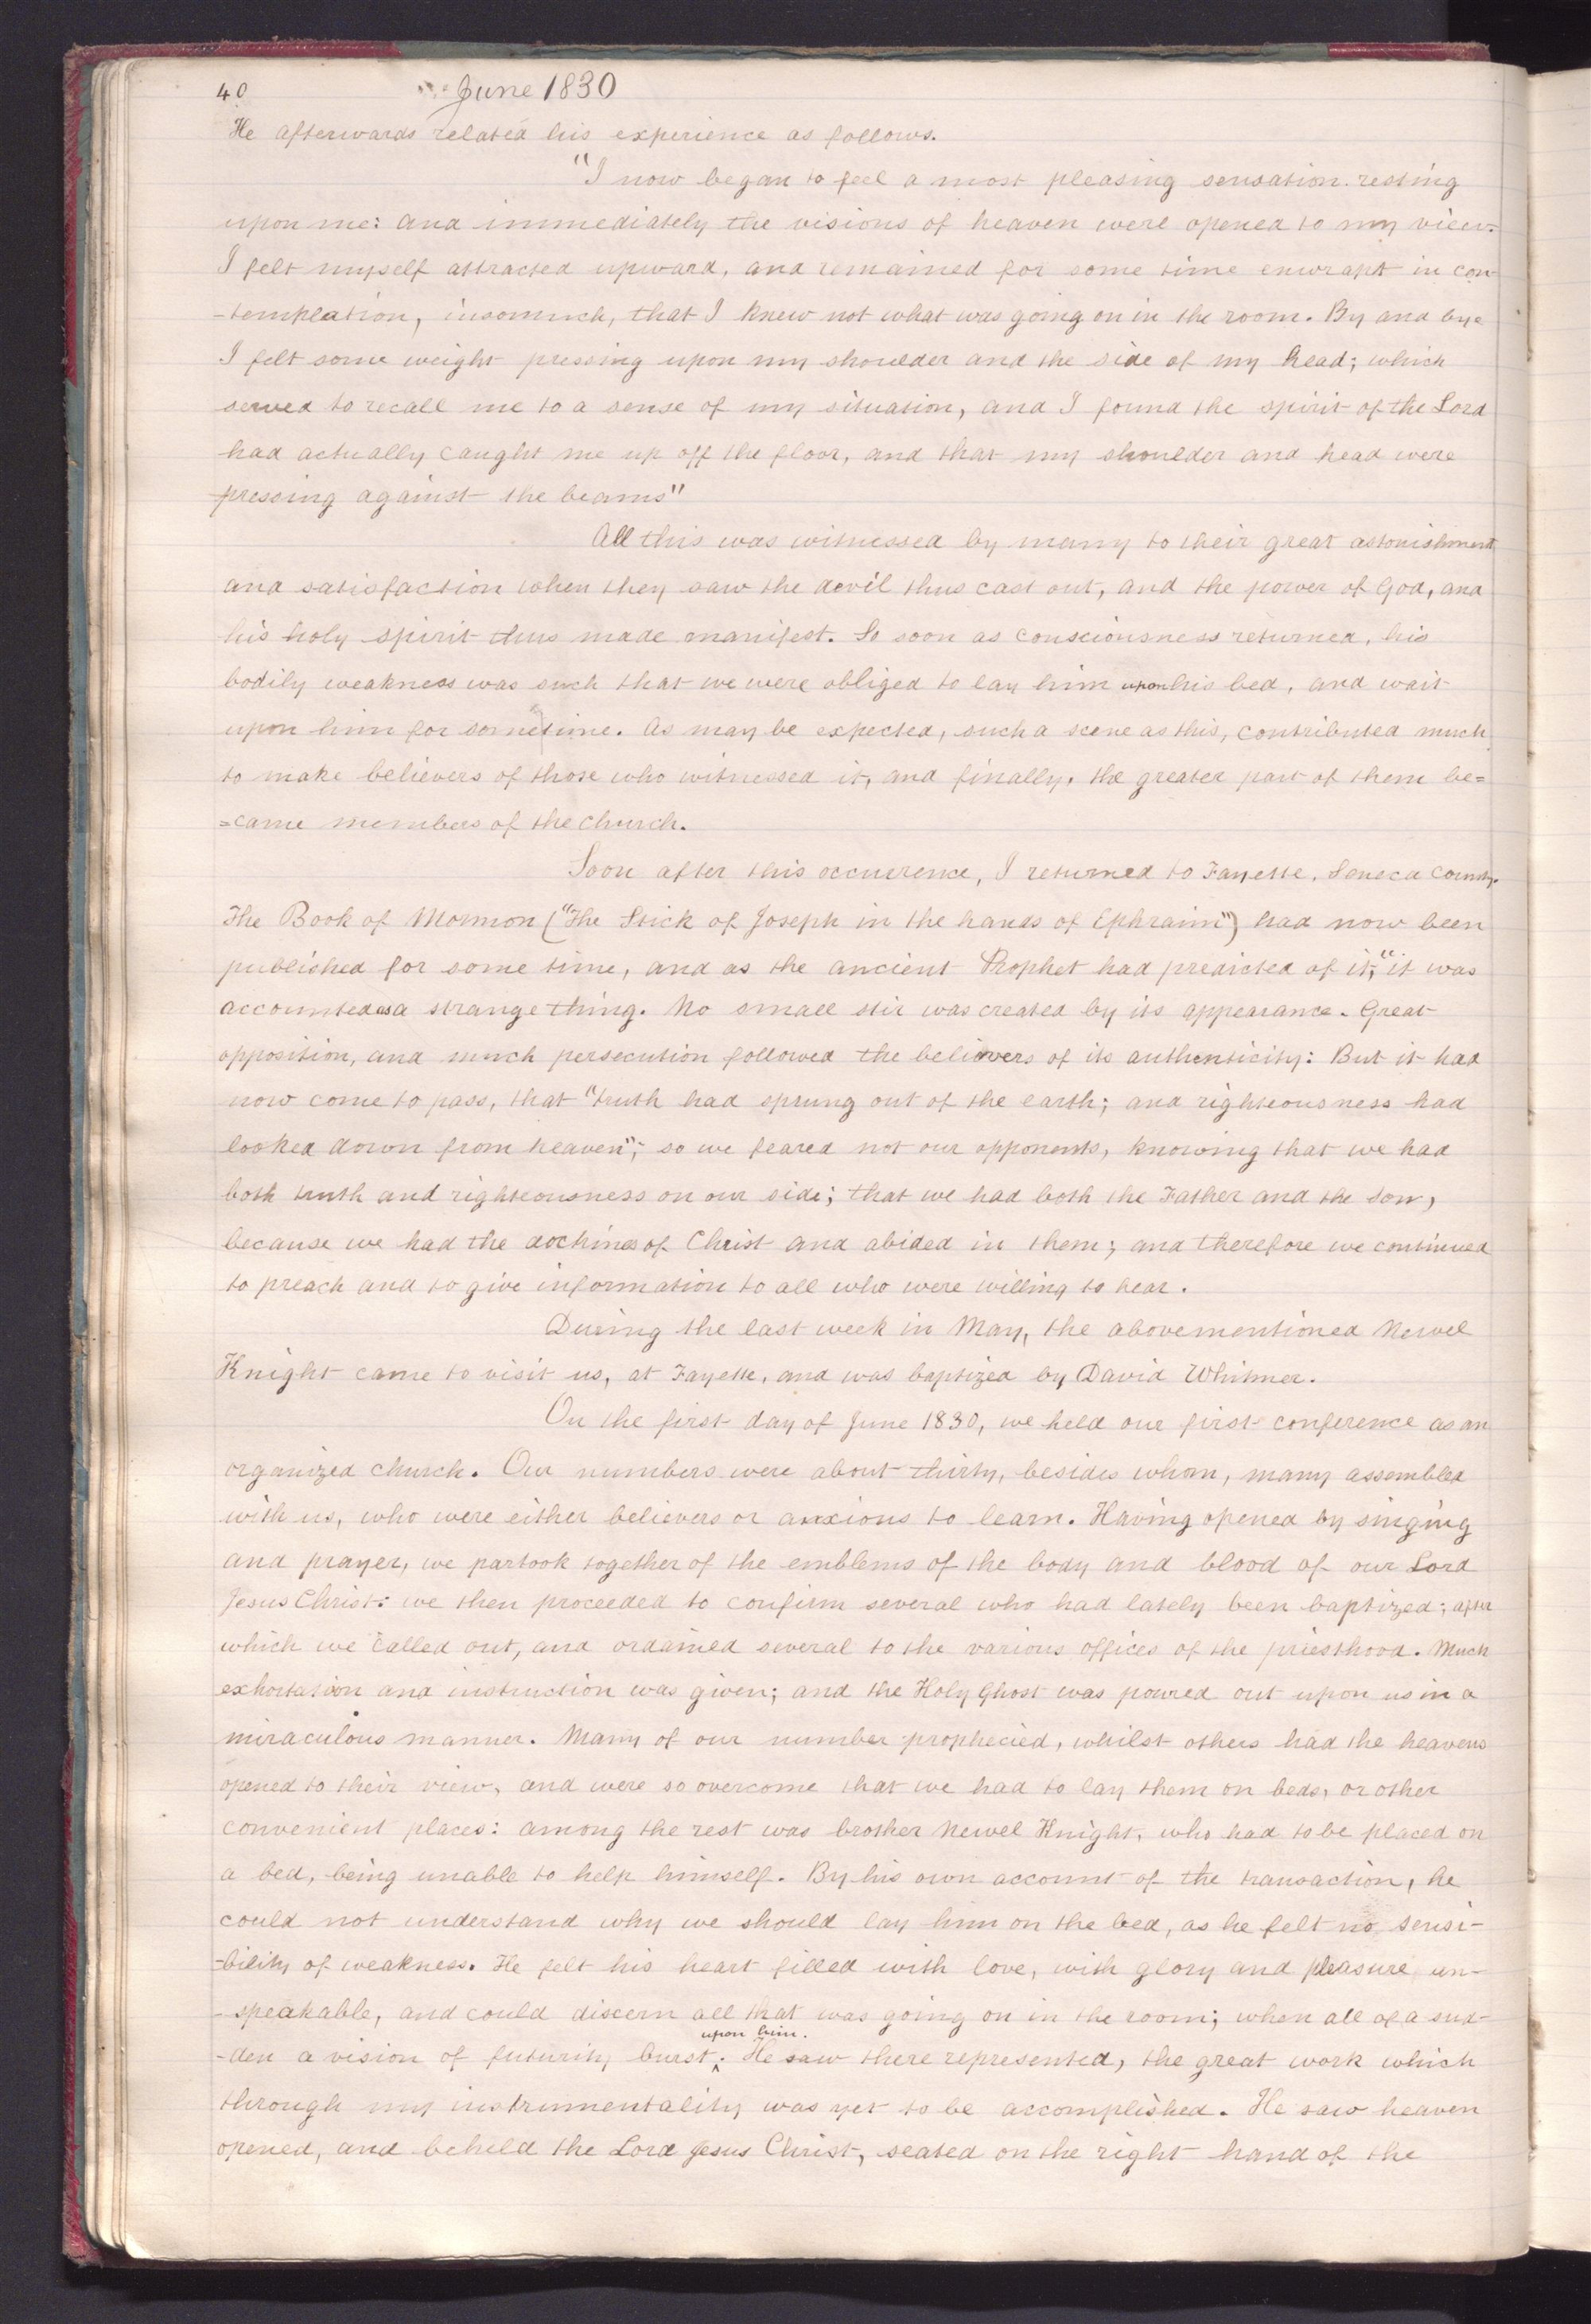 40 June 1830
He afterwards related his experience as follows.
"I now began to feel a most pleasing sensation resting
upon me: and immediately the visions of heaven were opened to my view.
I felt myself attracted upward, and remained for some time enwrapt in con-
-templation, insomuch, that I knew not what was going on in the room. By and bye
I felt some weight pressing upon my shoulder and the side of my head; which
served to recall me to a sense of my situation, and I found the spirit of the Lord
had actually caught me up off the floor, and that my shoulder and head were
pressing against the beams"
All this was witnessed by many to their great astonishment
and satisfaction when they saw the devil thus cast out, and the power of God, and
his holy spirit thus made manifest. So soon as consciousness returned, his
bodily weakness was such that we were obliged to lay him upon his bed, and wait
upon him for sometime. As may be expected, such a scene as this, contributed much
to make believers of those who witnessed it, and finally, the greater part of them be=
=came members of the Church.
Soon after this occurrence, I returned to Fayette, Seneca County.
The Book of Mormon ("The Stick of Joseph in the hands of Ephraim") had now been
published for some time, and as the ancient Prophet had predicted of it; "it was
accounted as a strange thing. No small stir was created by its appearance. Great
opposition, and much persecution followed the believers of its authenticity: But it had
now come to pass, that "truth had sprung out of the earth; and righteousness had
looked down from heaven"; so we feared not our opponents, knowing that we had
both truth and righteousness on our side; that we had both the Father and the Son,
because we had the doctrines of Christ and abided in them; and therefore we continued
to preach and to give information to all who were willing to hear.
During the last week in May, the abovementioned Newel
Knight came to visit us, at Fayette, and was baptized by David Whitmer.
On the first day of June 1830, we held our first conference as an
organized church. Our numbers were about thirty, besides whom, many assembled
with us, who were either believers or anxious to learn. Having opened by singing
and prayer, we partook together of the emblems of the body and blood of our Lord
Jesus Christ: we then proceeded to confirm several who had lately been baptized; after
which we called out, and ordained several to the various offices of the priesthood. Much
exhortation and instruction was given; and the Holy Ghost was poured out upon us in a
miraculous manner. Many of our number prophecied, whilst others had the heavens
opened to their view, and were so overcome that we had to lay them on beds, or other
convenient places: among the rest was brother Newel Knight, who had to be placed on
a bed, being unable to help himself. By his own account of the transaction, he
could not understand why we should lay him on the bed, as he felt no sensi-
-bility of weakness. He felt his heart filled with love, with glory and pleasure un-
-speakable, and could discern all that was going on in the room; when all of a sud-
-den a vision of futurity burst upon him. He saw there represented, the great work which
through my instrumentality was yet to be accomplished. He saw heaven
opened, and beheld the Lord Jesus Christ, seated on the right hand of the